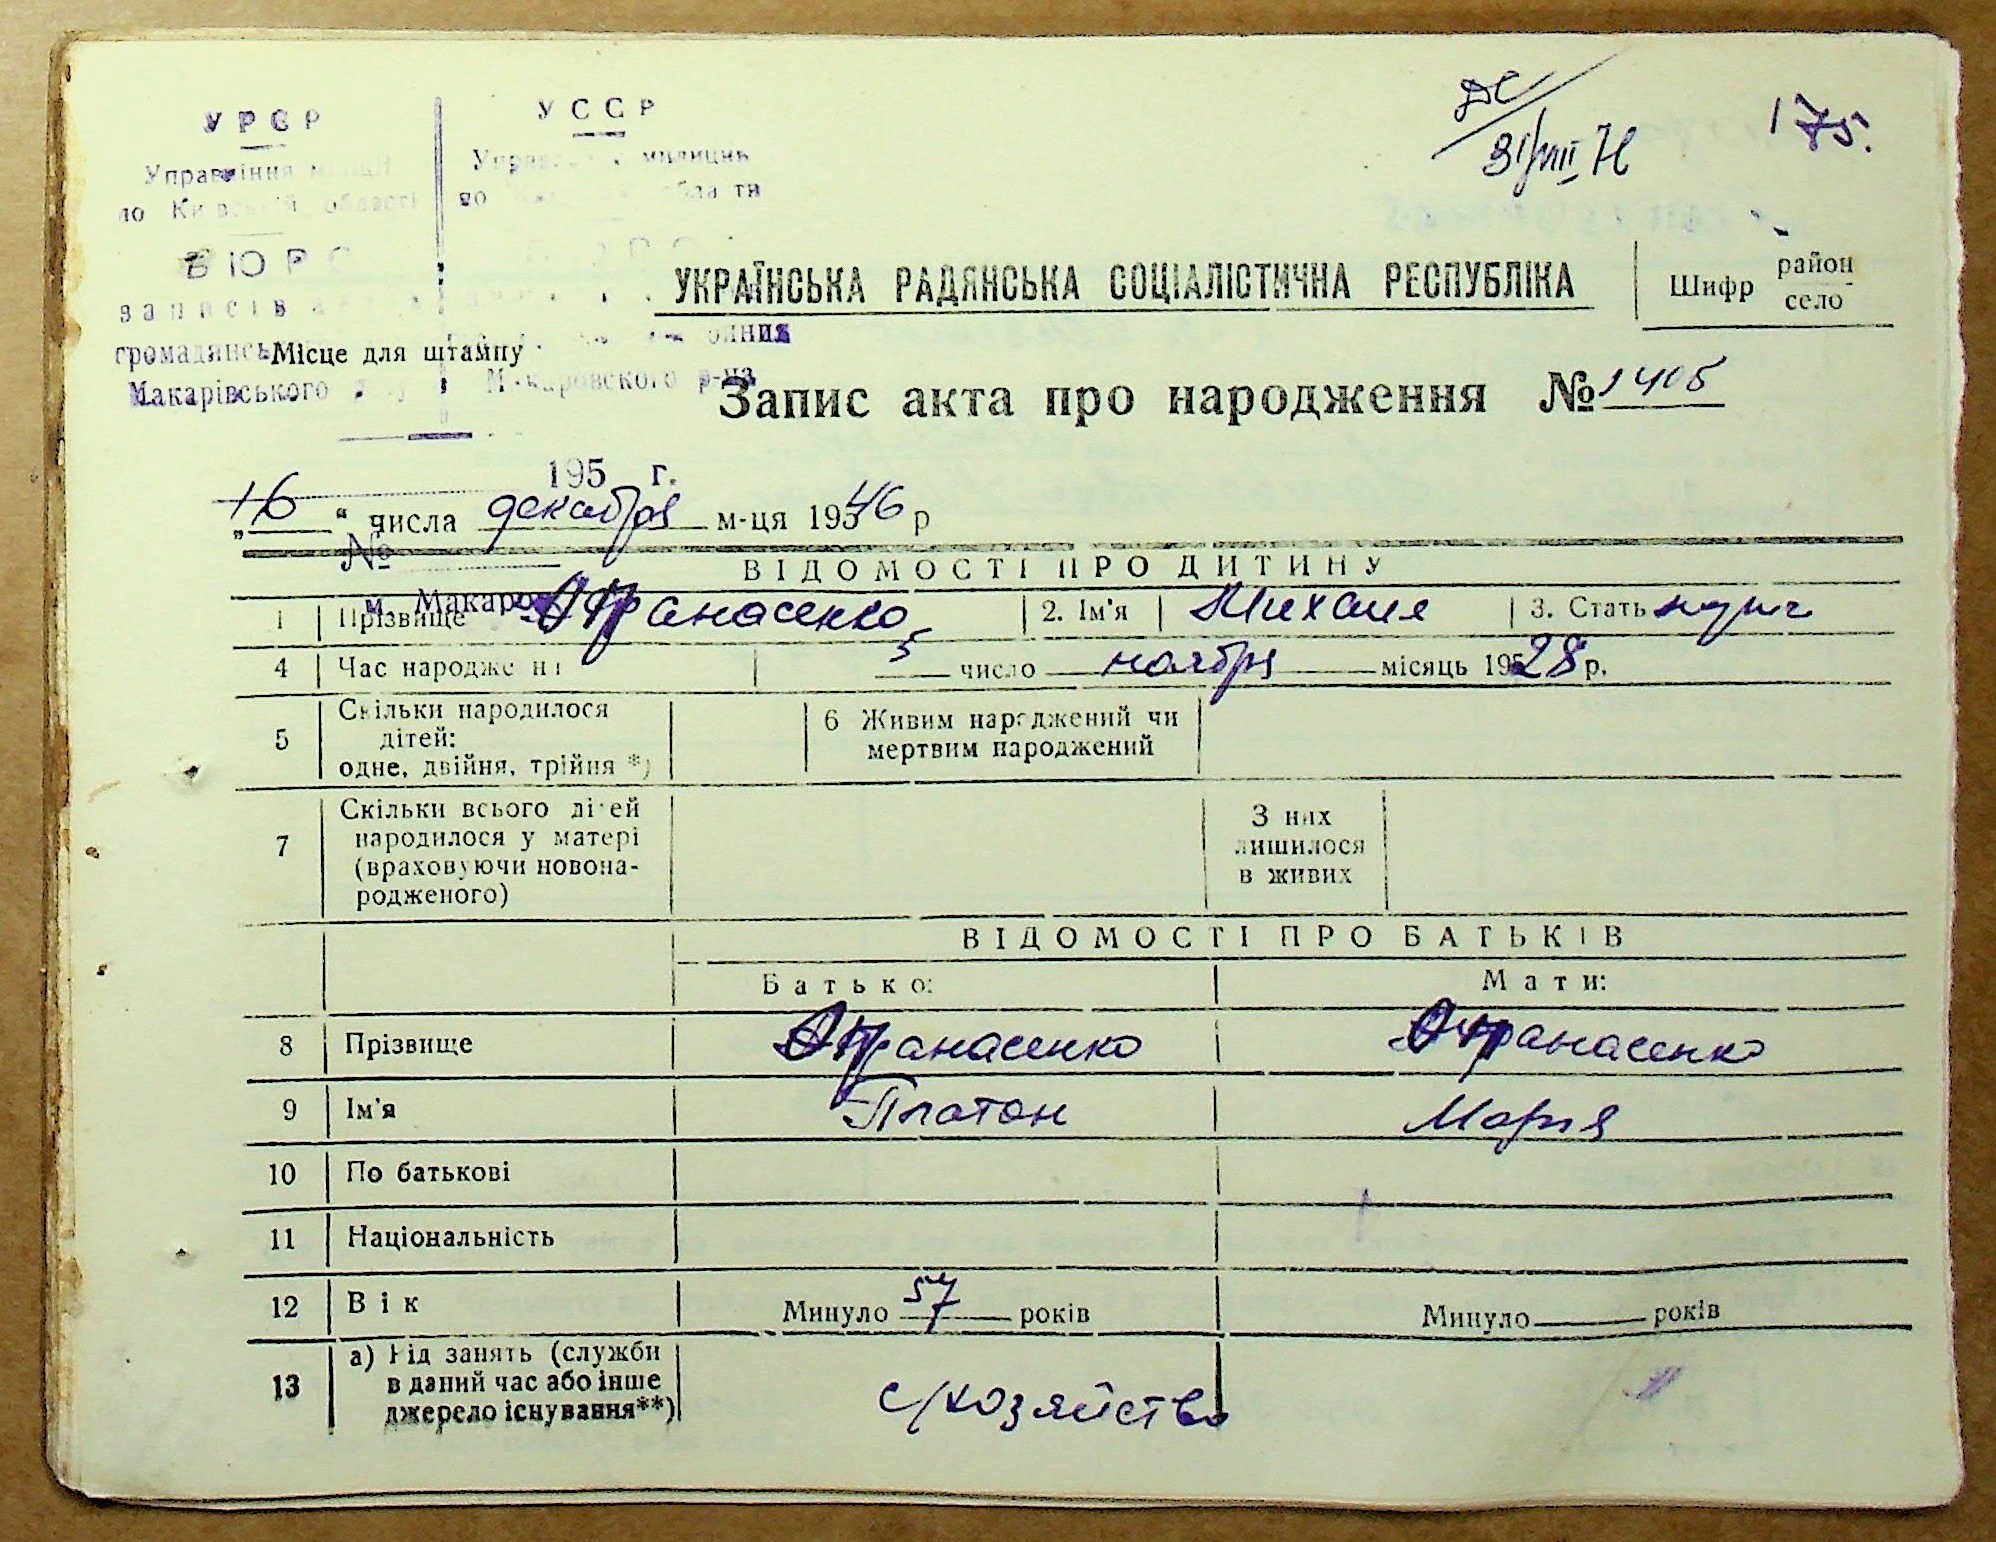 УРСР
Управління міліції
по Київській області
БЮРО
записів
громадянськ
Макарівського
УССР
милиции
по области
Макаровского р-на
175.
УКРАЇНСЬКА РАДЯНСЬКА СОЦІАЛІСТИЧНА РЕСПУБЛІКА
Шифр район
село
Місце для штампу
Запис акта про народження № 1405
195 г.
„16“ числа декабря м-ця 1946 р
№
м. Макаров
ВІДОМОСТІ ПРО ДИТИНУ
1 Прізвище Афанасенко 2. Ім'я Михаил 3. Стать муж
4 Час народження 5 число ноября місяць 1928 р.
5 Скільки народилося
дітей:
одне, двійня, трійня *)
6 Живим народжений чи
мертвим народжений
7 Скільки всього дітей
народилося у матері
(враховуючи новона-
родженого)
З них
лишилося
в живих
ВІДОМОСТІ ПРО БАТЬКІВ
Батько: Мати:
8 Прізвище Афанасенко Афанасенко
9 Ім'я Платон Мария
10 По батькові
11 Національність
12 Вік Минуло 57 років Минуло років
13 а) Рід занять (служби
в даний час або інше
джерело існування**)
с/хозяйство